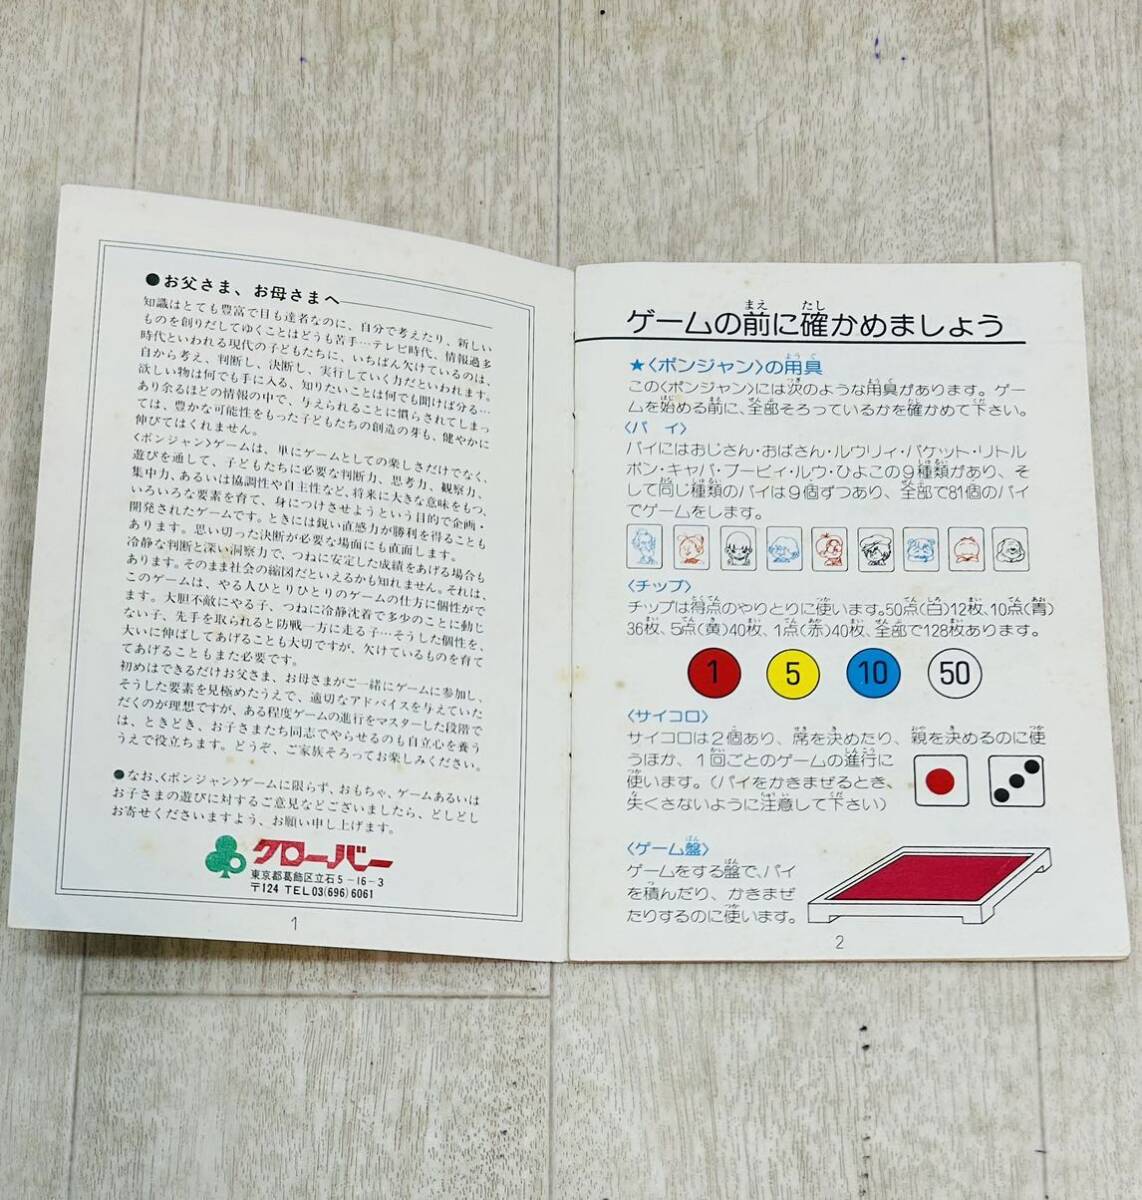 ●お父さま、お母さまへ
知識はとても豊富で目も達者なのに、自分で考えたり、新しい
ものを創りだしてゆくことはどうも苦手…テレビ時代、情報過多
時代といわれる現代の子どもたちに、いちばん欠けているのは、
自から考え、判断し、決断し、実行していく力だといわれます。
欲しい物は何でも手に入る、知りたいことは何でも聞けば分る…
あり余るほどの情報の中で、与えられることに慣らされてしまっ
ては、豊かな可能性をもった子どもたちの創造の芽も、健やかに
伸びてはくれません。
〈ポンジャン〉ゲームは、単にゲームとしての楽しさだけでなく、
遊びを通して、子どもたちに必要な判断力、思考力、観察力、
集中力、あるいは協調性や自主性など、将来に大きな意味をもつ、
いろいろな要素を育て、身につけさせようという目的で企画・
開発されたゲームです。ときには鋭い直感力が勝利を得ることも
あります。思い切った決断が必要な場面にも直面します。
冷静な判断と深い洞察力で、つねに安定した成績をあげる場合も
あります。そのまま社会の縮図だといえるかも知れません。それは、
このゲームは、やる人ひとりひとりのゲームの仕方に個性がで
ます。大胆不敵にやる子、つねに冷静沈着で多少のことに動じ
ない子、先手を取られると防戦一方に走る子…そうした個性を、
大いに伸ばしてあげることも大切ですが、欠けているものを育て
てあげることもまた必要です。
初めはできるだけお父さま、お母さまがご一緒にゲームに参加し、
そうした要素を見極めたうえで、適切なアドバイスを与えていた
だくのが理想ですが、ある程度ゲームの進行をマスターした段階で
は、ときどき、お子さまたち同志でやらせるのも自立心を養う
うえで役立ちます。どうぞ、ご家族そろってお楽しみください。
●なお、〈ポンジャン〉ゲームに限らず、おもちゃ、ゲームあるいは
お子さまの遊びに対するご意見などございましたら、どしどし
お寄せくださいますよう、お願い申し上げます。
クローバー
東京都葛飾区立石5-16-3
〒124 TEL03(696)6061
1
ゲームの前に確かめましょう
★〈ポンジャン〉の用具
この〈ポンジャン〉には次のような用具があります。ゲー
ムを始める前に、全部そろっているかを確かめて下さい。
〈パイ〉
パイにはおじさん・おばさん・ルウリィ・パケット・リトル
ポン・キャパ・プービィ・ルウ・ひよこの9種類があり、そ
して同じ種類のパイは9個ずつあり、全部で81個のパイ
でゲームをします。
〈チップ〉
チップは得点のやりとりに使います。50点(白)12枚、10点(青)
36枚、5点(黄)40枚、1点(赤)40枚、全部で128枚あります。
1 5 10 50
〈サイコロ〉
サイコロは2個あり、席を決めたり、親を決めるのに使
うほか、1回ごとのゲームの進行に
使います。(パイをかきまぜるとき、
失くさないように注意して下さい)
〈ゲーム盤〉
ゲームをする盤で、パイ
を積んだり、かきまぜ
たりするのに使います。
2